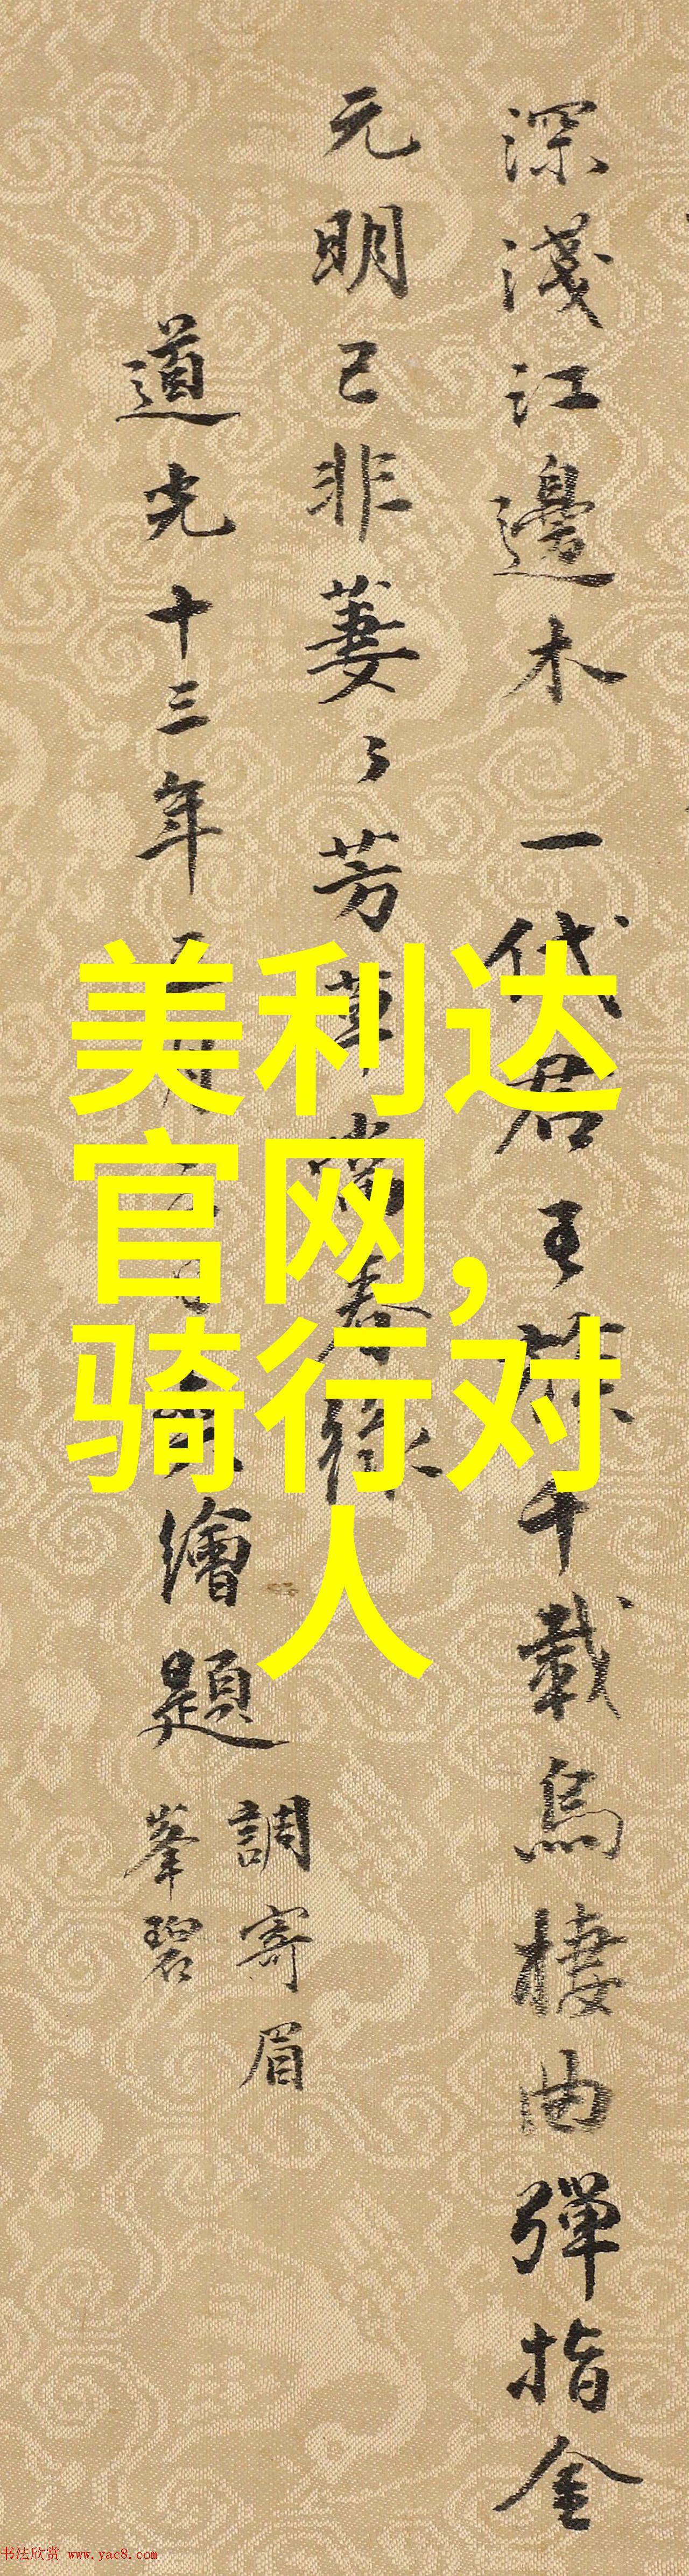 深淺江邊木 一代君王族千載烏棲曲彈指金
元明已非萋〻芳草當春綠
道光十三年 月 繪題
調寄眉
峯碧
美利达
官网,
骑行对
人
书法欣赏 www.yac8.com